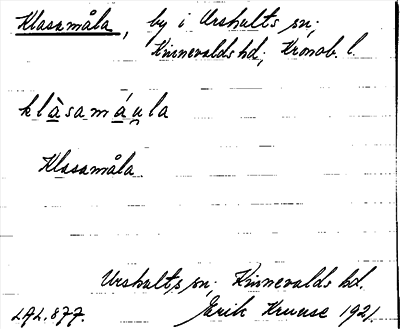 Klasamåla, by i Urshults sn;
Kinnevalds hd; Kronob. l.
klàsamáu̯la
Klasamåla.
Urshults sn; Kinnevalds hd.
LAL.877. Erik Kruuse 1921